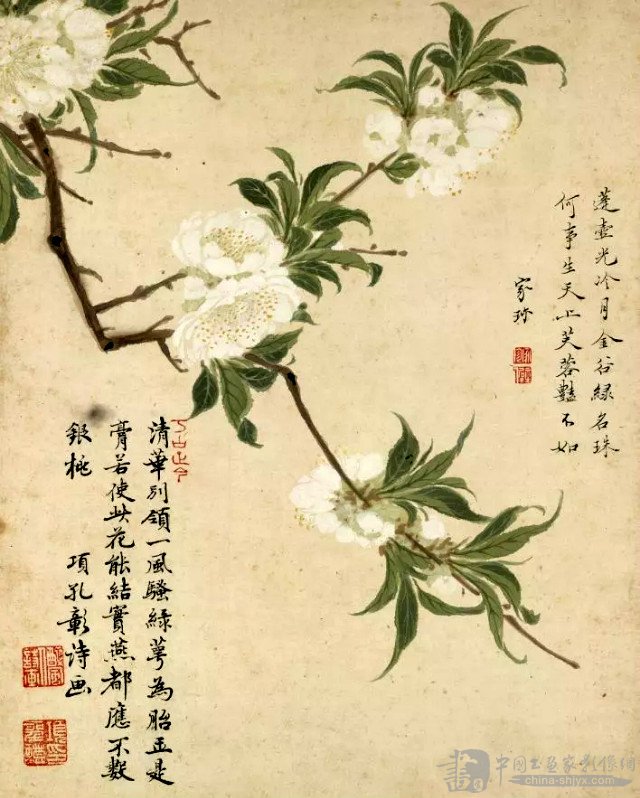 蓬壺光冷月金谷綠名珠
何事生天上芙蓉豔不如
家珍
清華別領一風騷綠萼為胎玉是
膏若使此花能結實燕都應不數
銀桃
項孔彰詩画
中国书画家影像网
china-shjyx.com